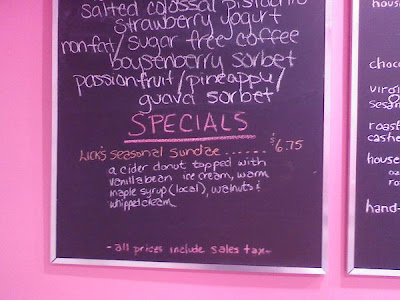 salted colossal pistachio
strawberry yogurt
nonfat/sugar free coffee
boysenberry sorbet
passionfruit/pineapple/
guava sorbet
SPECIALS
Lick's seasonal sundae....... $6.75
a cider donut topped with
vanilla bean ice cream, warm
maple syrup (local), walnuts &
whipped cream
-all prices include sales tax-
house
choc
virgi
sesam
roast
cashe
house
hand-